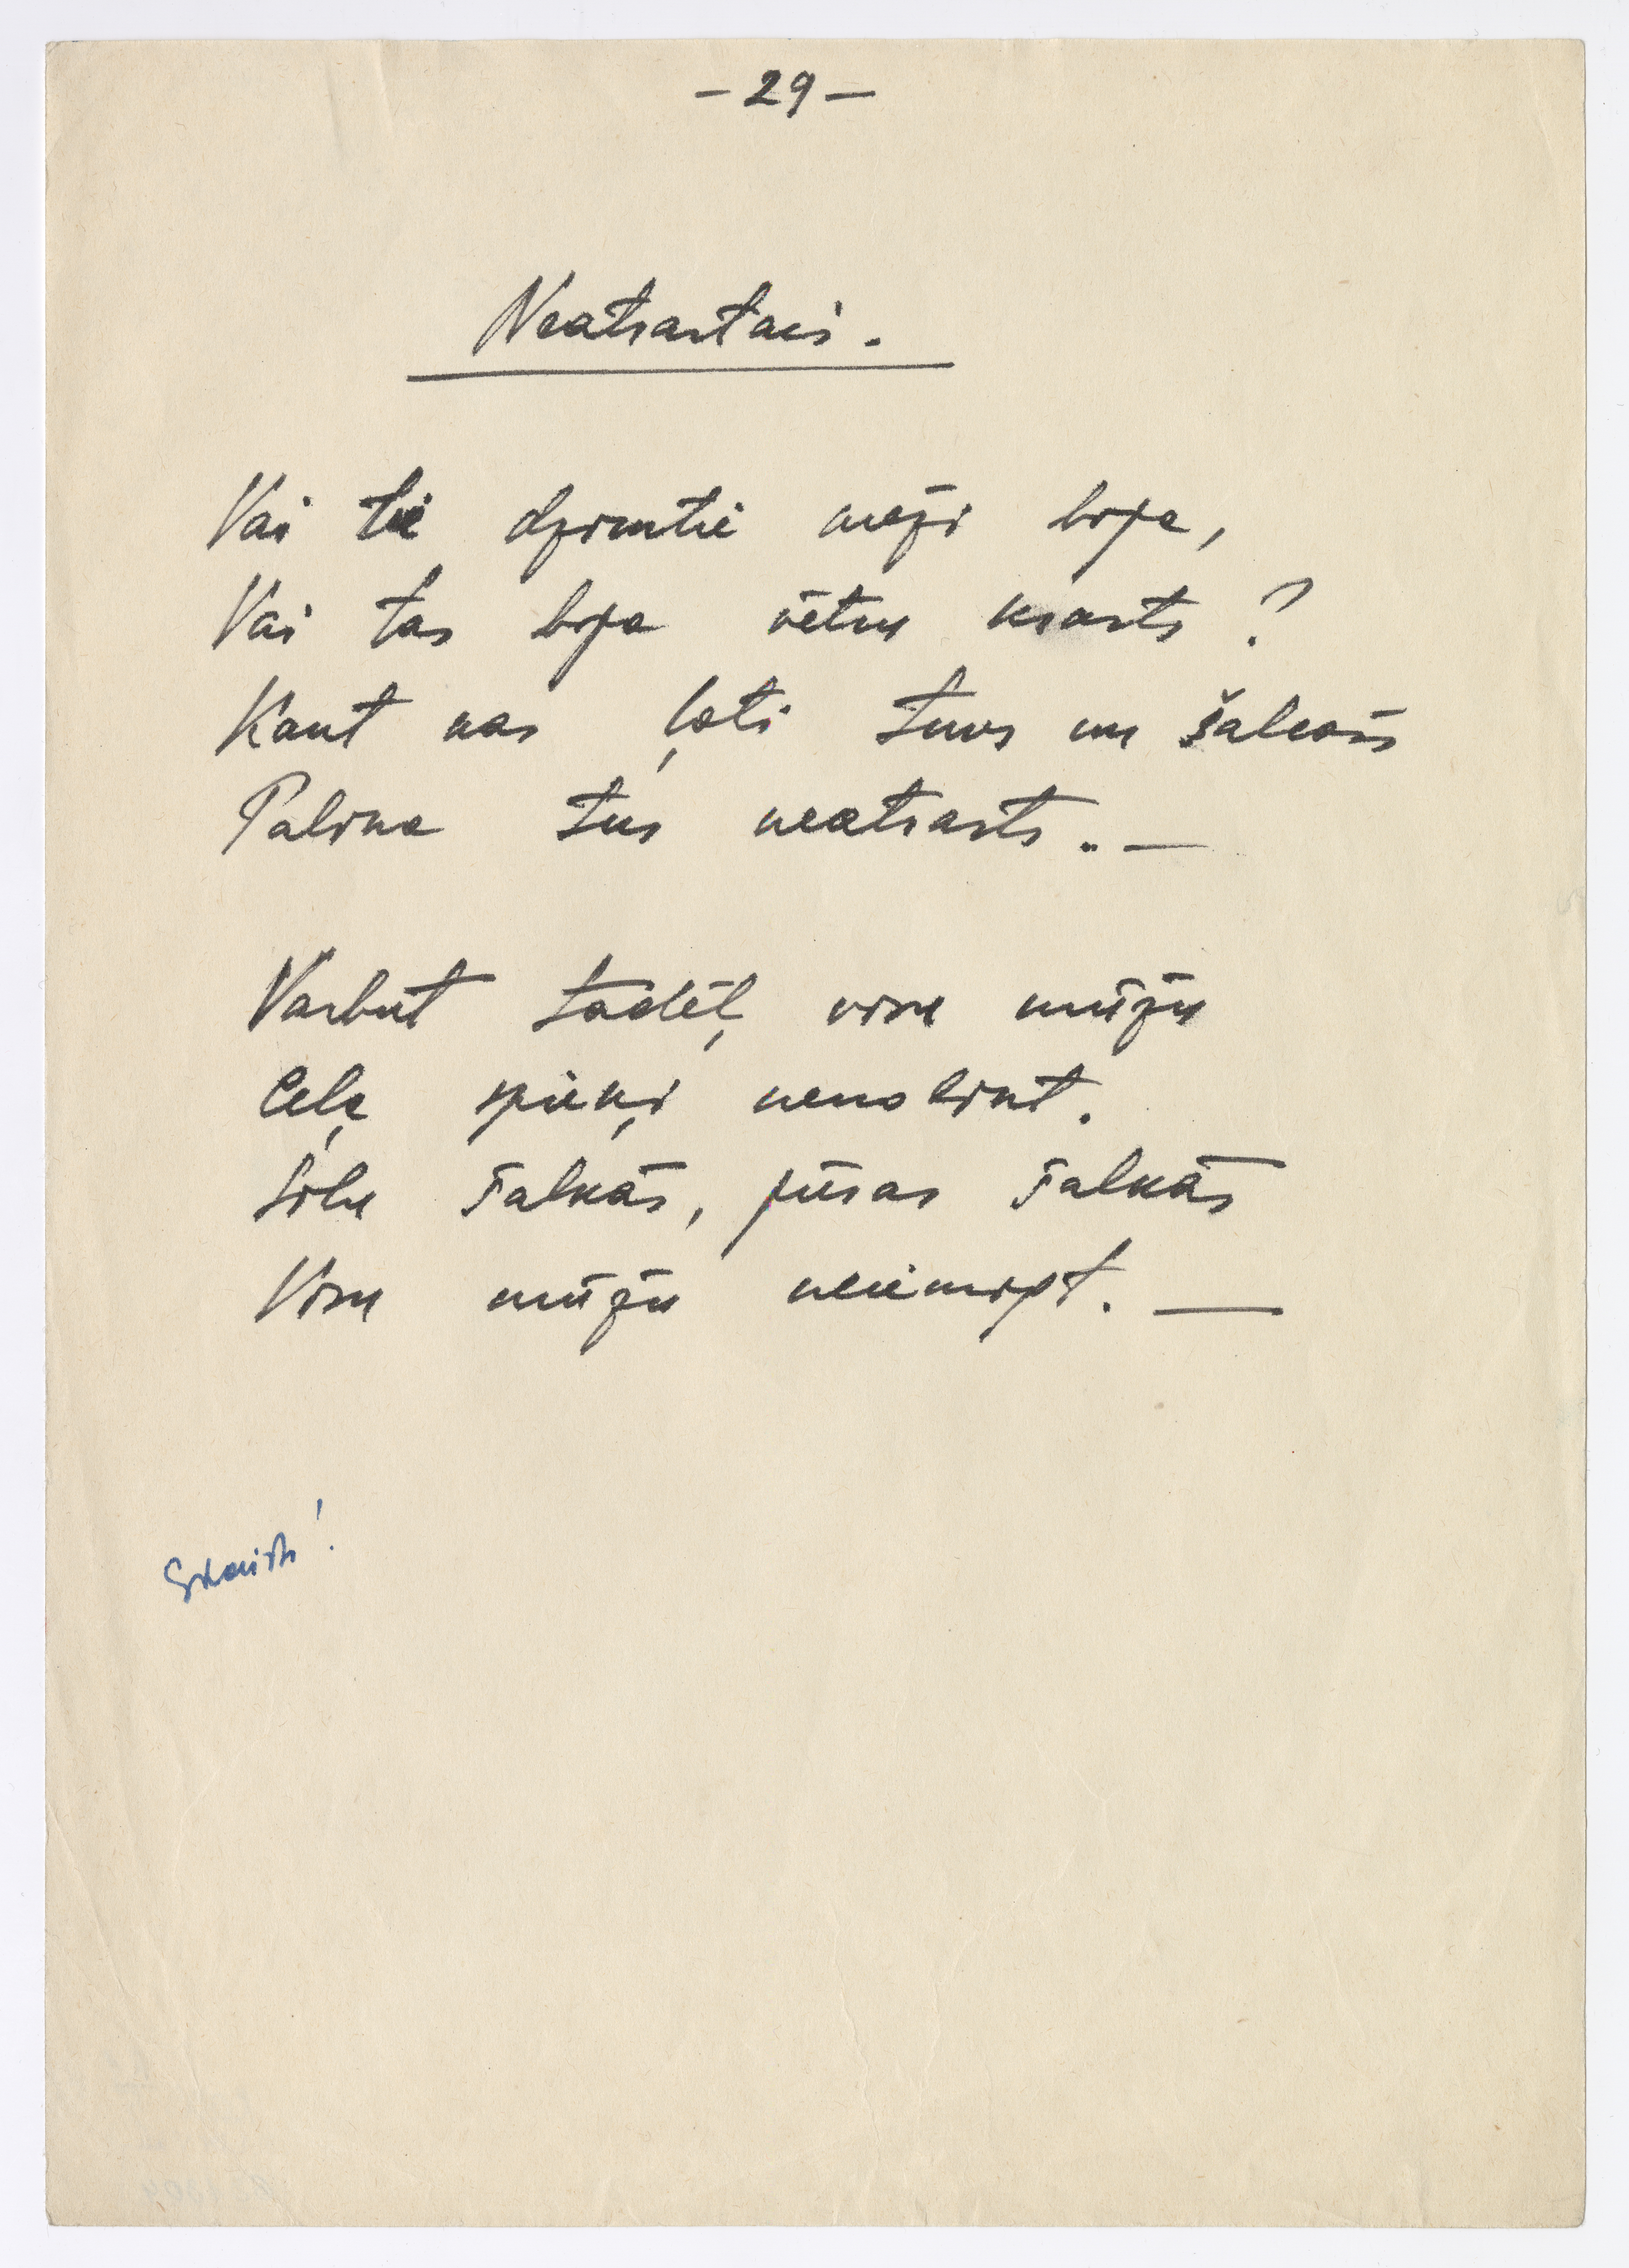 – 29 –
Neatrastais.
Vai tie dzimtie meži bija,
Vai tas bija vētru krasts?
Kaut kas ļoti tuvs un šalcošs
Palika tur neatrasts.. —
Varbūt tādēļ visu mūžu
Ceļa spieķi nenolikt.
Silu šalkās, jūras šalkās
Visu mūžu neiemigt. —
Skaisti!